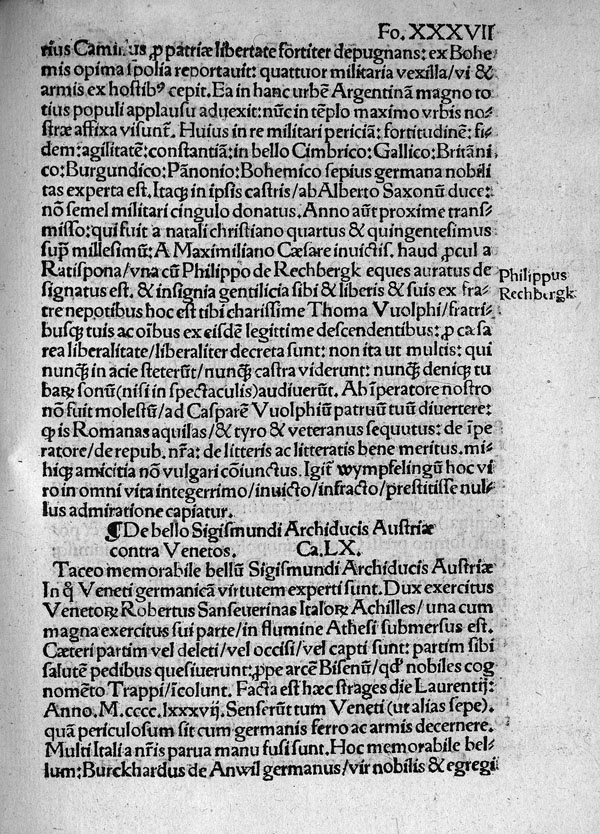 Fo. XXXVII
rius Camirus ꝓ patriæ libertate fortiter depugnans: ex Bohe
mis opima ſpolia reportauit: quattuor militaria vexilla/vi &
armis ex hoſtibꝰ cepit. Ea in hanc urbē Argentinā magno to
tius populi applauſu aduexit: nūc in tēplo maximo vrbis no⸗
ſtræ affixa viſunt̃. Huius in re militari periciā: fortitudinē: fi⸗
dem: agilitatē: conſtantiā: in bello Cimbrico: Gallico: Britāni
co: Burgundico: Pānonio: Bohemico ſepius germana nobili
tas experta eſt. Itaqȝ in ipſis caſtris/ab Alberto Saxonū duce:
nō ſemel militari cingulo donatus. Anno aūt proxime tranſ⸗
miſſo: qui fuit a natali chriſtiano quartus & quingenteſimus
ſup̄ milleſimū: A Maximiliano Cæſare inuictiſ. haud ꝓcul a
Ratiſpona/vna cū Philippo de Rechbergk eques auratus de
ſignatus eſt. & inſignia gentilicia ſibi & liberis & ſuis ex fra⸗
tre nepotibus hoc eſt tibi chariſſime Thoma Vuolphi/fratri⸗
buſqȝ tuis ac oībus ex eiſdē legittime deſcendentibus: ꝓ cæſa
rea liberalitate/liberaliter decreta ſunt: non ita ut multis: qui
nunqȝ in acie ſteterūt/nunqȝ caſtra viderunt: nunqȝ deniqȝ tu
baꝝ ſonū(niſi in ſpectaculis)audiuerūt. Ab īperatore noſtro
nō fuit moleſtū/ad Caſparē Vuolphiū patruū tuū diuertere:
ꝙ is Romanas aquilas/& tyro & veteranus ſequutus: de īpe
ratore/de repub. nr̄a: de litteris ac litteratis bene meritus. mi⸗
hiqȝ amicitia nō vulgari cōiunctus. Igit̃ wympfelingū hoc vi
ro in omni vita integerrimo/inuicto/infracto/preſtitiſſe nul⸗
lus admiratione capiatur.
¶De bello Sigiſmundi Archiducis Auſtriæ
contra Venetos. Ca. LX.
Taceo memorabile bellū Sigiſmundi Archiducis Auſtriæ
In q̃ Veneti germanicā virtutem experti ſunt. Dux exercitus
Venetoꝝ Robertus Sanſeuerinas Italoꝝ Achilles/una cum
magna exercitus ſui parte/in flumine Atheſi submerſus eſt.
Cæteri partim vel deleti/vel occiſi/vel capti ſunt: partim ſibi
ſalutē pedibus queſiuerunt: ꝓpe arcē Biſenū/qđ nobiles cog
nomēto Trappi/īcolunt. Facta eſt hæc ſtrages die Laurentij:
Anno. M. cccc. lxxxvij. Senſerūt tum Veneti (ut alias ſepe).
quā periculoſum ſit cum germanis ferro ac armis decernere.
Multi Itali a nr̄is parua manu fuſi ſunt. Hoc memorabile bel⸗
lum: Burckhardus de Anwil germanus/vir nobilis & egregi
Philippus
Rechbergk